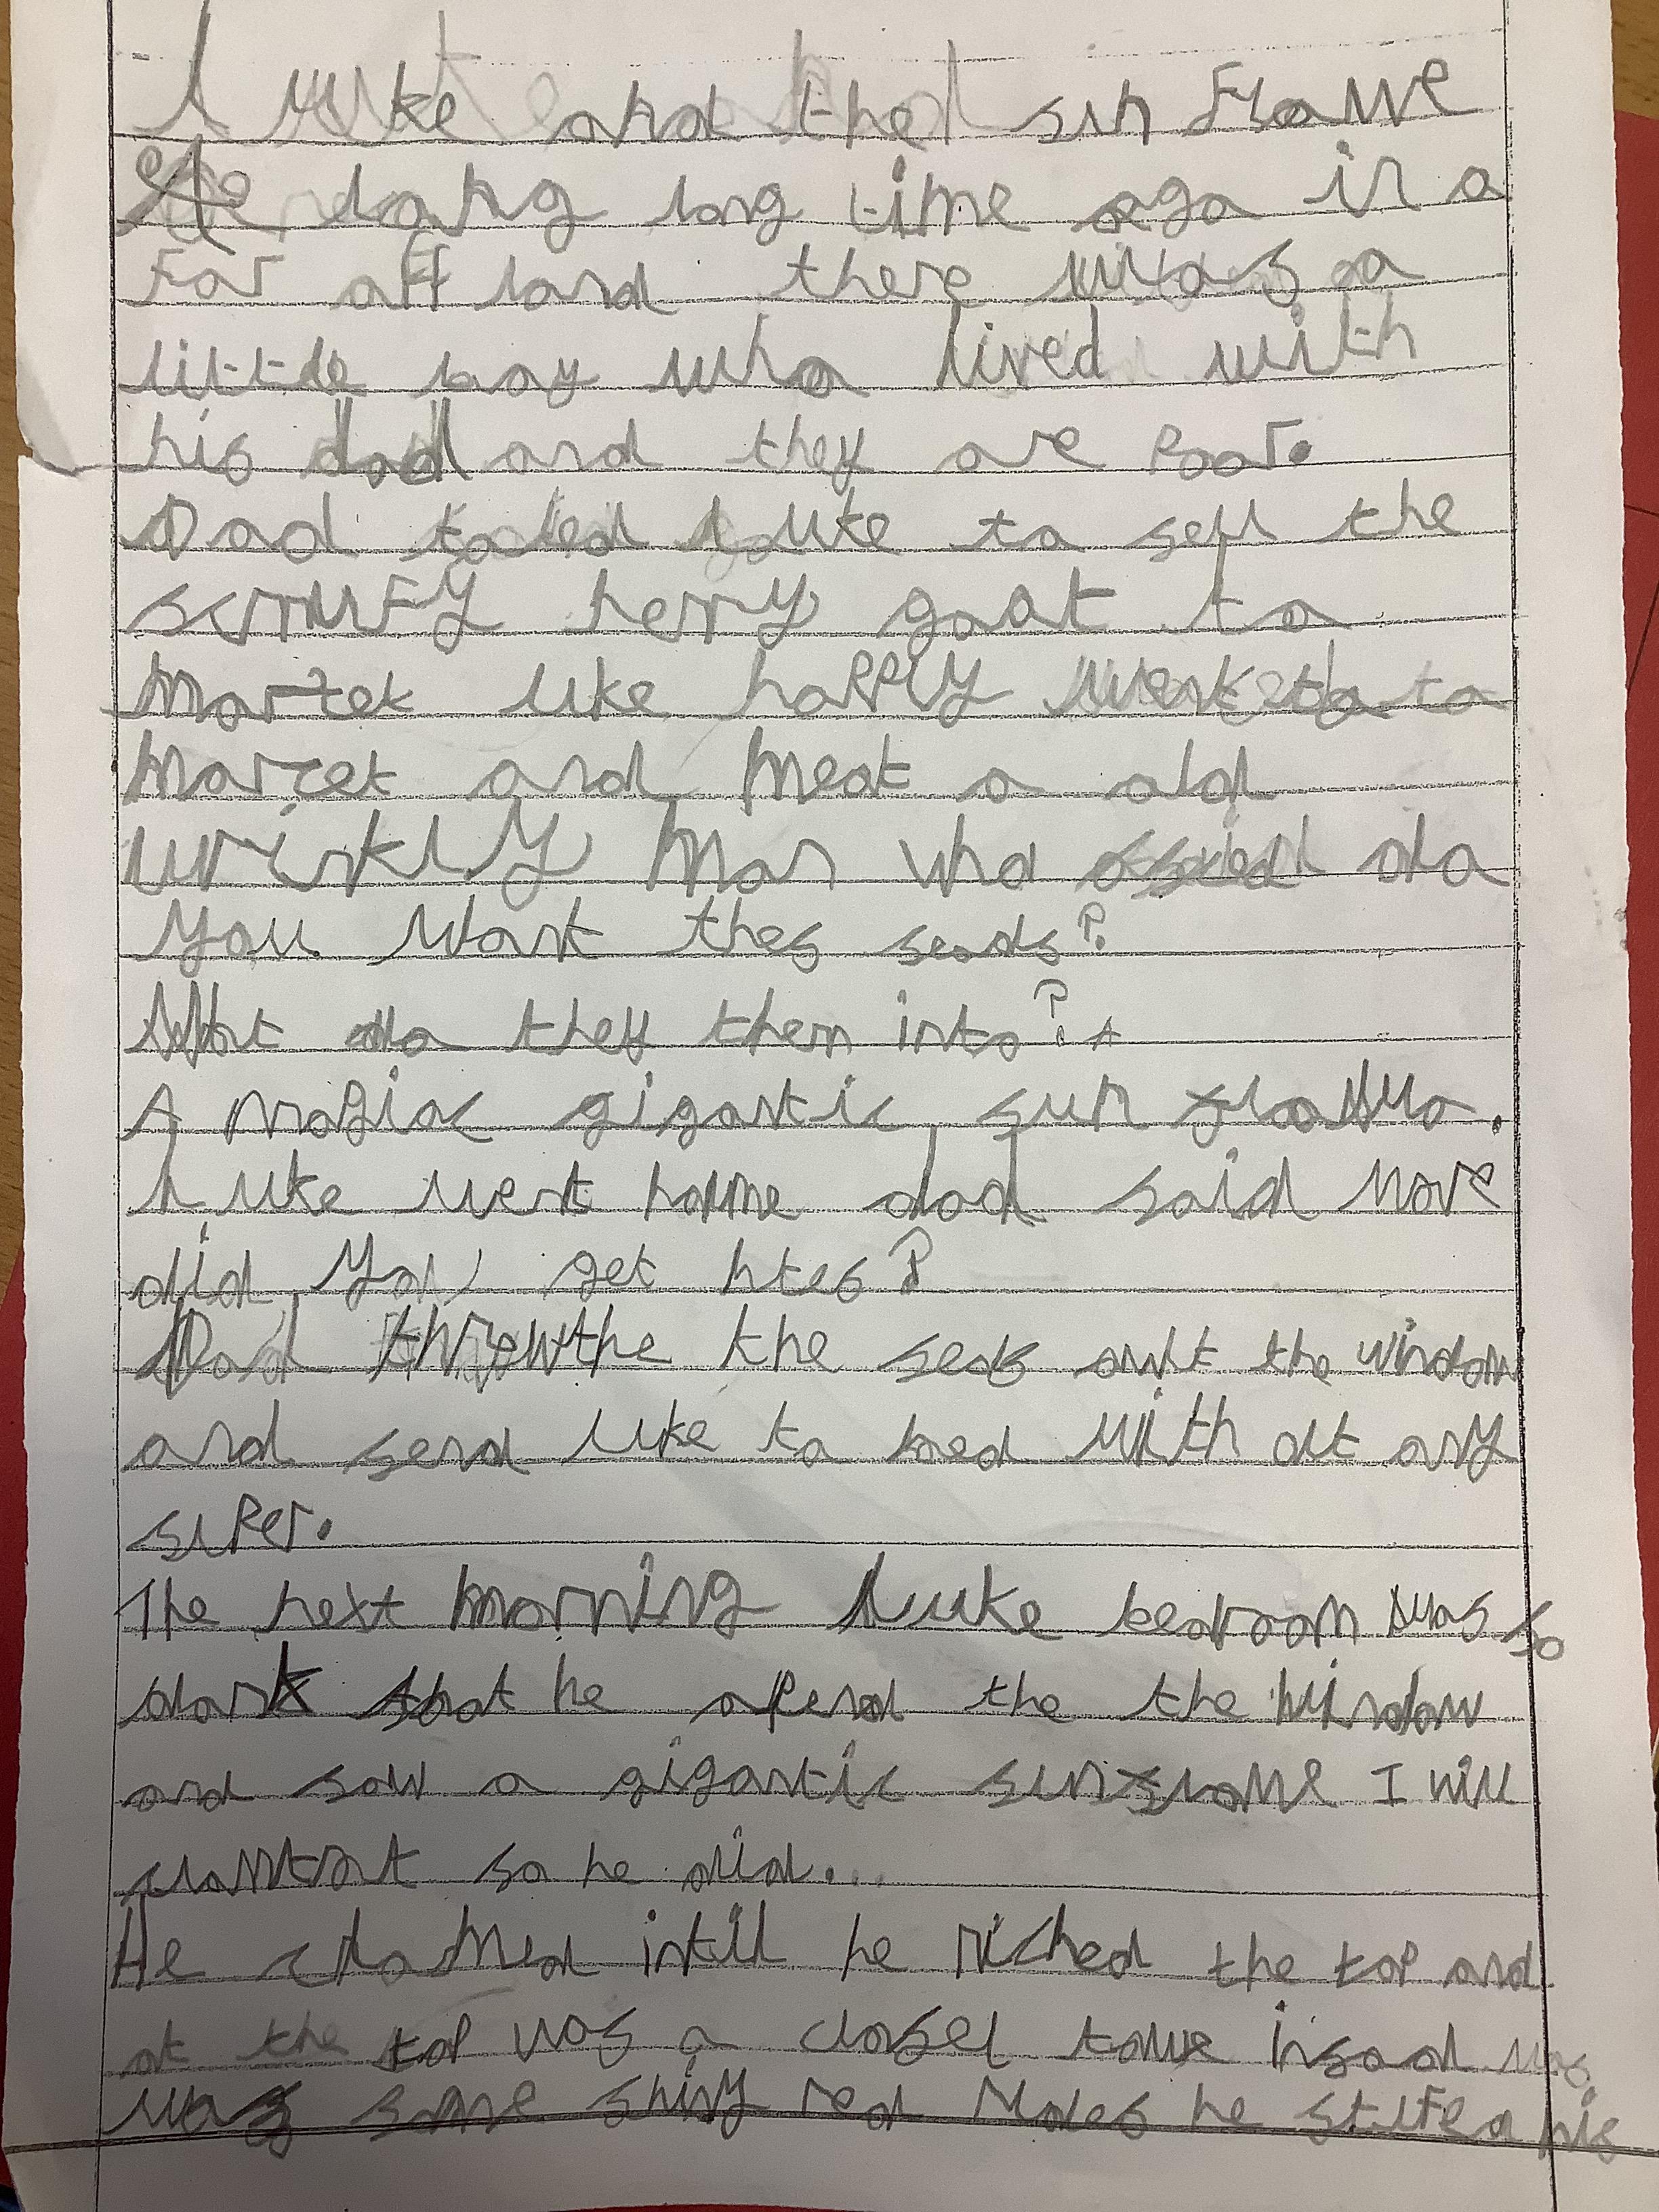 Luke and the sun Flowe
A long long time ago in a
Far off land there was a
little boy who lived with
his dad and they are Poor.
Dad toled Luke to sell the
scrruFy herry goat to
Marcet luke happly went to
Marcet and meat a old
wrinkly man who asked do
you want thes seads?
Wht do they then into?
A magic gigantic sun flowo.
Luke went home dad said Were
did you get htes?
Dad throwthe the seds owt the window
and send luke to bed with ot any
suPer.
The next morning Luke bedroom was so
dark that he oPend the the window
and saw a gigantic sunflowe I will
he so he did...
He intill he riched the toP and
at the toP was a towe insad was
was some shiny red he his